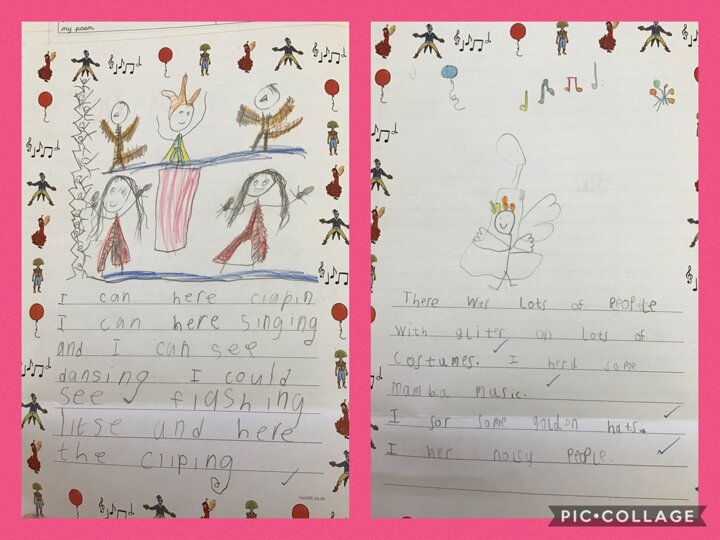 my poem.
I can here clapin
I can here singing
and I can see
dansing I could
see flashing
litse and here
the cliping
twinkl.co.uk
There was lots of people
with gliter on lots of
costumes. I herd some
mamba music.
I sor some golden hats.
I her noisy people.
PIC•COLLAGE